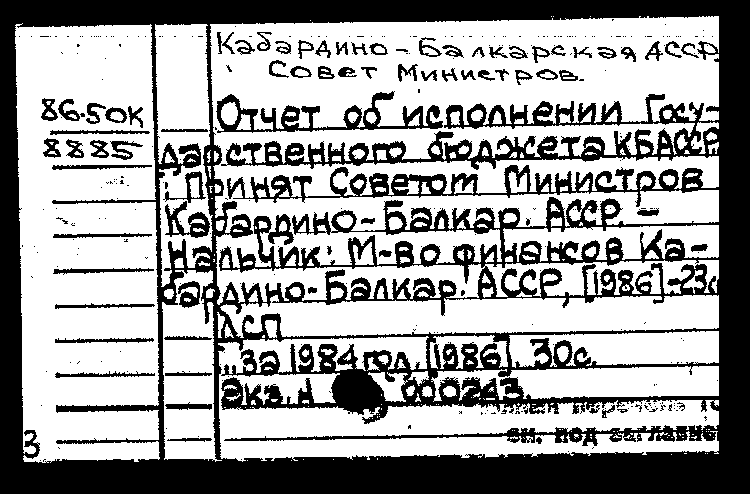 Кабардино-Балкарская АССР.
Совет Министров.
86-50к
Отчет об исполнении Госу-
8885
дарственного бюджета КБАССР
: Принят Советом Министров
Кабардино-Балкар. АССР. -
Нальчик: М-во финансов Ка-
бардино-Балкар. АССР, [1986]-23с
ДСП
...за 1984 год. [1986]. 30с.
Экз. № 000243.
перечень
3
см. под заглавие